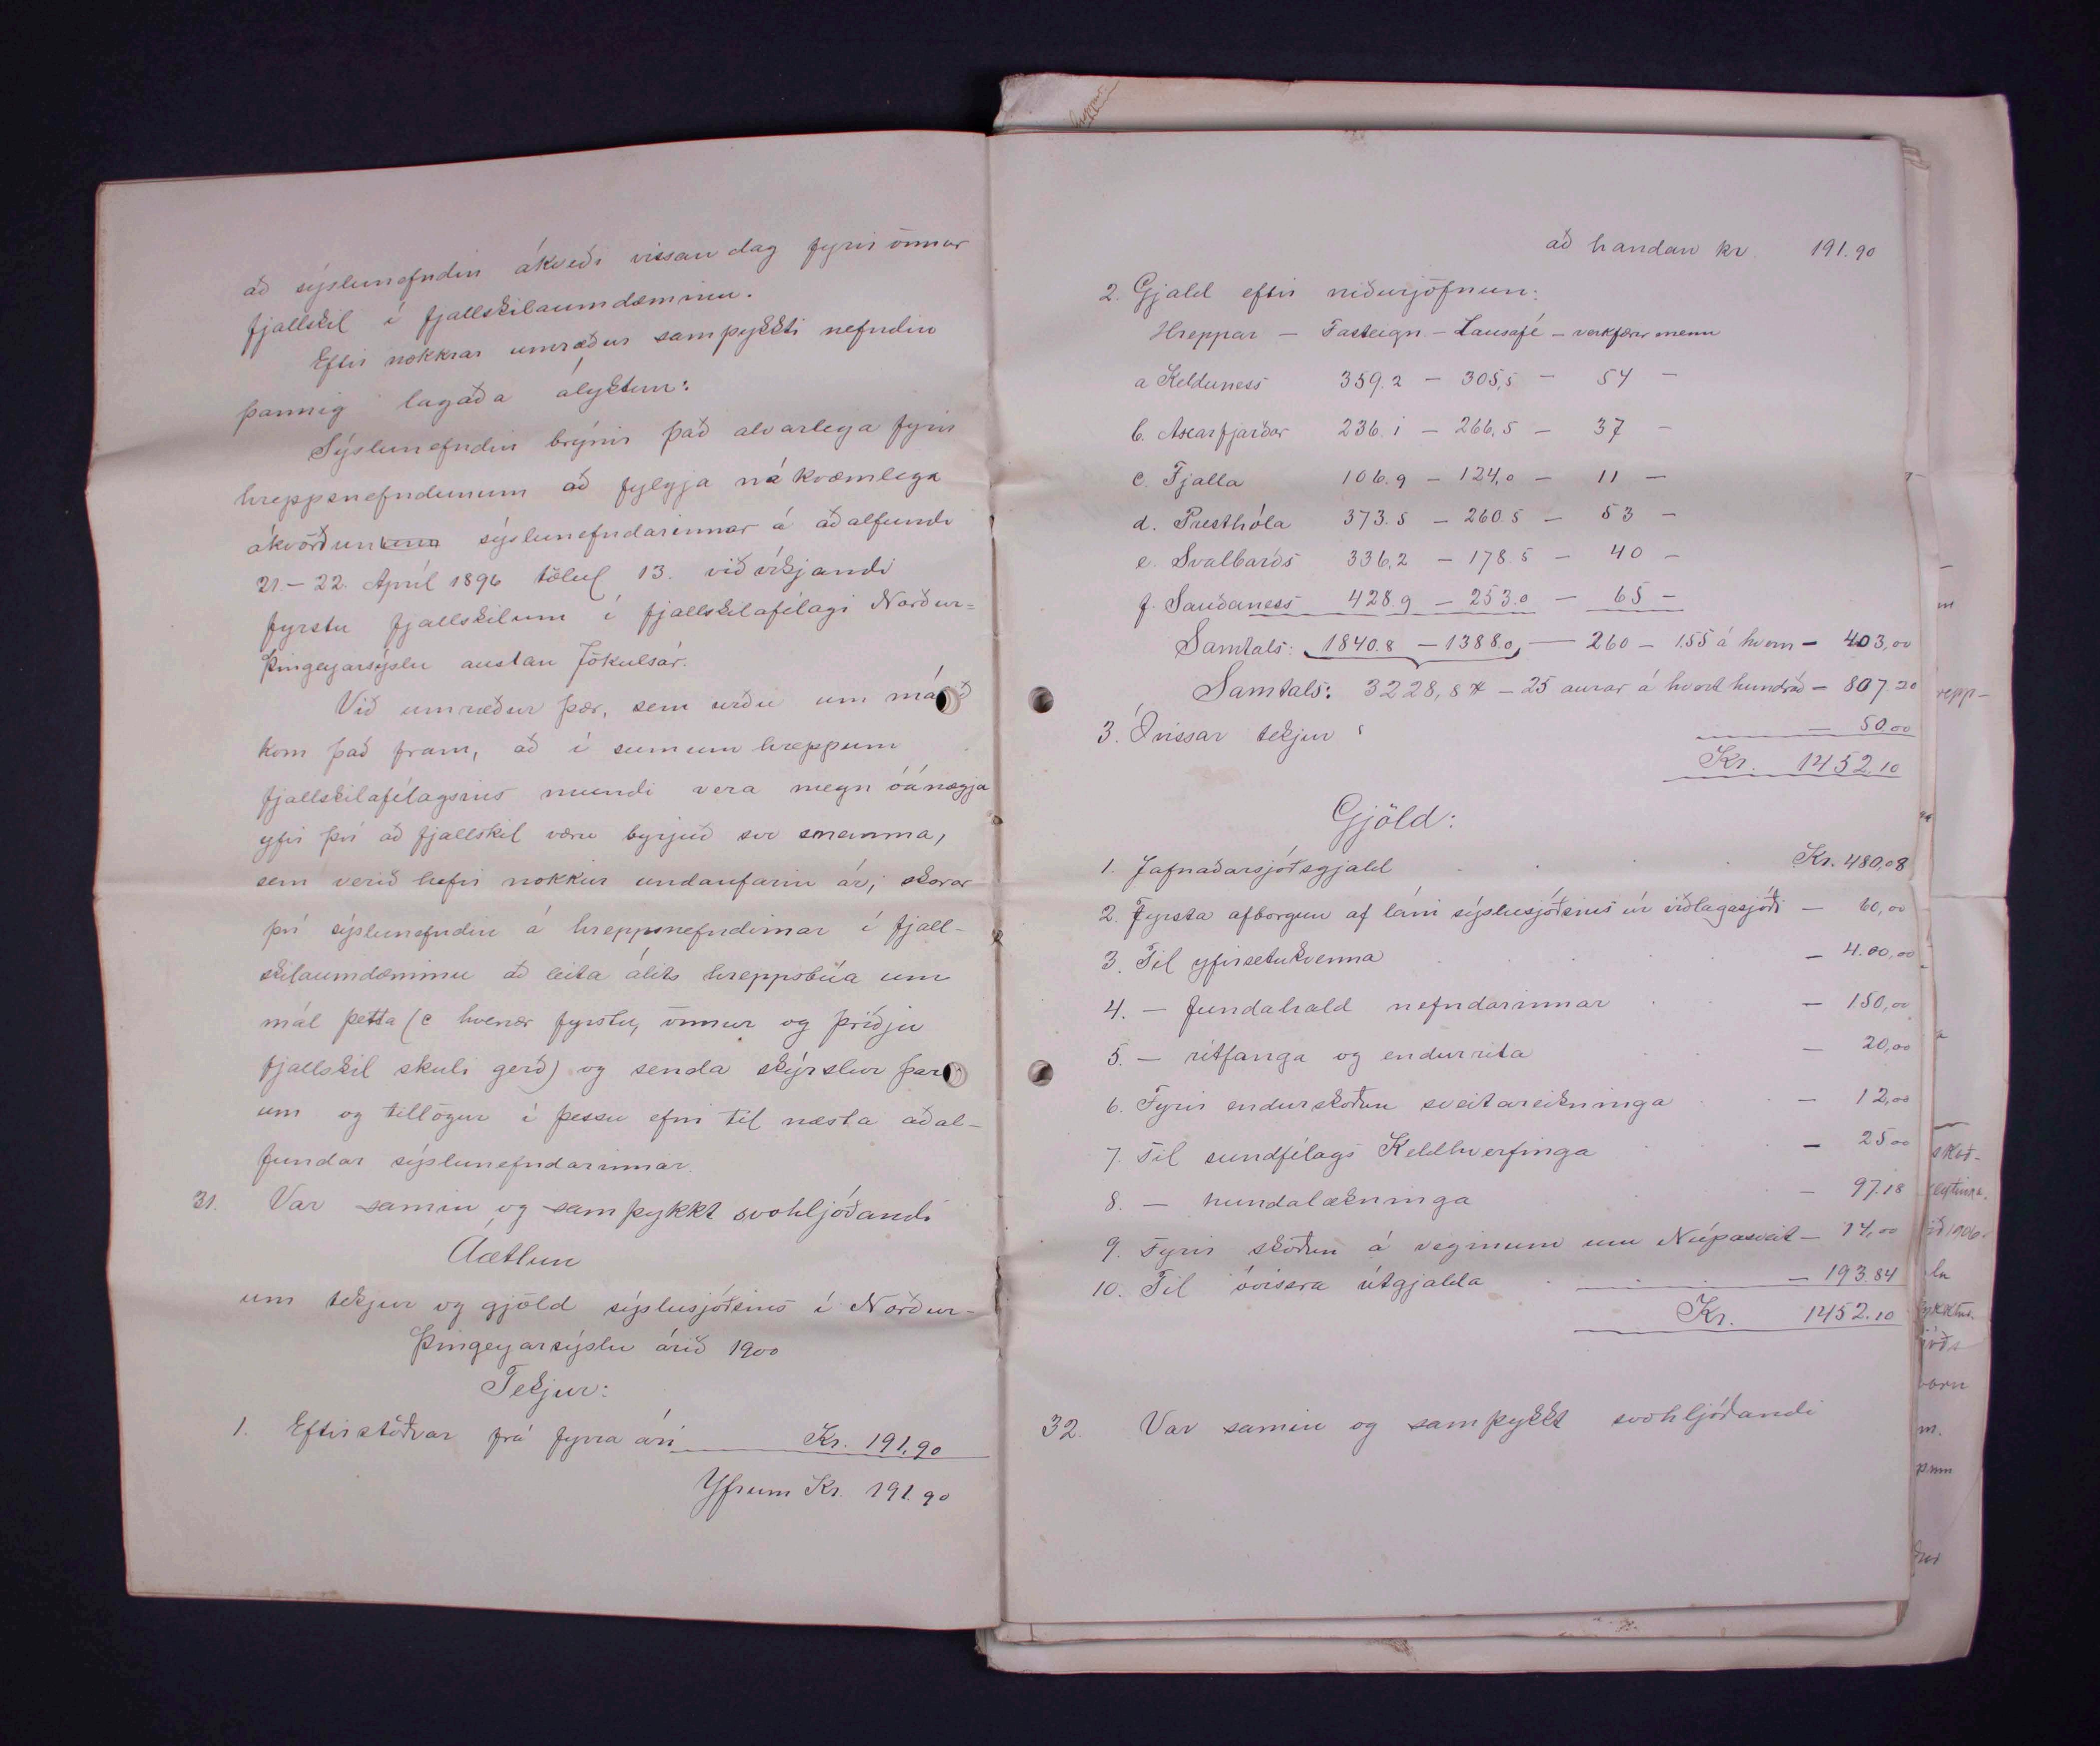 að sýslunefndin ákveði vissan dag fyrir önnur
fjallskil í fjallskilaumdæminu.
Eftir nokkrar umræður samþykkti nefndin
þannig lagaða ályktun:
Sýslunefndin brýnir það alvarlega fyrir
hreppsnefndunum að fylgja nákvæmlega
ákvörðun sýslunefndarinnar á aðalfundi
21.-22. Apríl 1896 tölul 13. viðvíkjandi
fyrstu fjallskilum í fjallskilafélagi Norður=
Þingeyarsýslu austan Jökulsár.
Við umræður þær, sem urðu um málið
kom það fram, að í sumum hreppum
fjallskilafélagsins mundi vera megn óánægja
yfir því að fjallskil væru byrjuð svo snemma,
sem verið hefir nokkur undanfarin ár; skorar
því sýslunefndin á hreppsnefndirnar í fjall-
skilaumdæminu að leita álits hreppsbúa um
mál þetta (c hvenær fyrstu, önnur og þriðju
fjallskil skuli gerð) og senda skýrslur þar
um og tillögur í þessu efni til næsta aðal-
fundar sýslunefndarinnar.
31. Var samin og samþykkt svohljóðandi
Áætlun
um tekjur og gjöld sýslusjóðsins í Norður-
Þingeyarsýslu árið 1900
Tekjur:
1. Eftirstöðvar frá fyrra ári Kr. 191,90
Yfrum Kr. 191.90
að handan kr. 191.90
2. Gjald eftir niðurjöfnun:
Hreppar - Fasteign - Lausafé - verkfærir menn
a Kelduness 359.2 - 305,5 - 54 -
b. Axarfjarðar 236.1 - 266,5 - 37 -
c. Fjalla 106.9 - 124,0 - 11 -
d. Presthóla 373.5 - 260.5 - 53 -
e. Svalbarðs 336,2 - 178.5 - 40 -
f. Sauðaness 428.9 - 253.0 - 65 -
Samtals: 1840.8 - 1388.0, - 260 - 1.55 á hvern - 403,00
Samtals: 3228,8 - 25 aurar á hvert hundrað - 807.20
3. Óvissar tekjur - 50,00
Kr. 1452.10
Gjöld:
1. Jafnaðarsjóðsgjald Kr. 480,08
2. Fyrsta afborgun af láni sýslusjóðsins úr viðlagasjóði - 60,00
3. Til yfirsetukvenna - 4.00,00
4. - fundahald nefndarinnar - 150,00
5. - ritfanga og endurrita - 20,00
6. Fyrir endurskoðun sveitareikninga - 12,00
7. Til sundfélags Keldhverfinga - 25 00
8. - hundalækninga - 97.18
9. Fyrir skoðun á veginum um Núpasveit - 14,00
10. Til óvissra útgjalda - 193.84
Kr. 1452.10
32. Var samin og samþykkt svohljóðandi